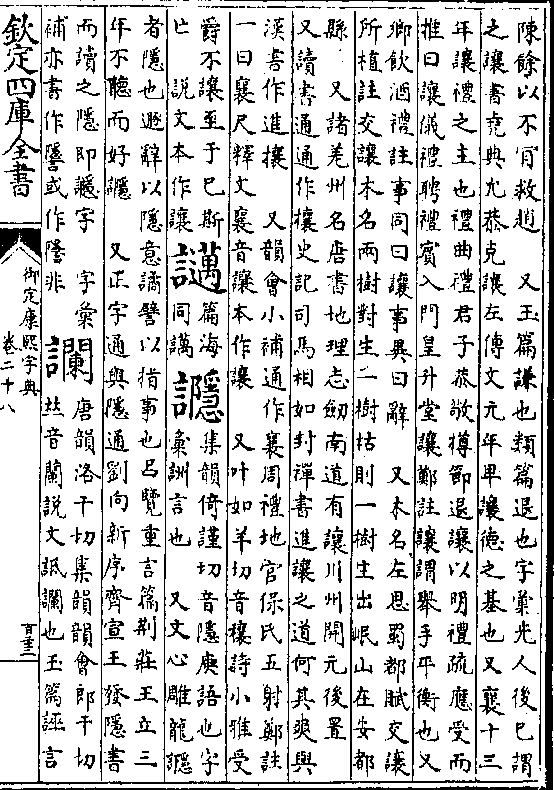 陳餘以不肎救趙　又玉篇謙也類篇退也字彙先人後已謂
之讓書堯典允恭克讓左傳文元年卑讓德之基也又襄十三
年讓禮之主也禮曲禮君子恭敬撙節退讓以明禮疏應受而
推曰讓儀禮聘禮賓入門皇升堂讓鄭註讓謂舉手平衡也又
鄉飲酒禮註事同曰讓事異曰辭　又木名左思蜀都賦交讓
所植註交讓木名兩樹對生一樹枯則一樹生出岷山在安都
縣　又諸羌州名唐書地理志劒南道有讓川州開元後置
又讀書通通作攘史記司馬相如封禪書進讓之道何其爽與
漢書作進攘　又韻會小補通作襄周禮地官保氏五射鄭註
一曰襄尺釋文襄音讓本作讓　又叶如羊切音穰詩小雅受
爵不讓至于已斯
亡　說文本作讓　讜篇海同讜　讔集韻倚謹切音隱庾語也字彙詶言也　又文心雕龍讔
者隱也遯辭以隱意譎譬以指事也呂覽重言篇荆莊王立三
年不聽而好讔　又正字通與隱通劉向新序齊宣王發隱書
而讀之隱即讔字　字彙
補亦書作讔或作隱非　讕唐韻洛干切集韻韻會郎干切𠀤音蘭說文詆讕也玉篇誣言
欽定四庫全書
御定康熙字典
卷二十八